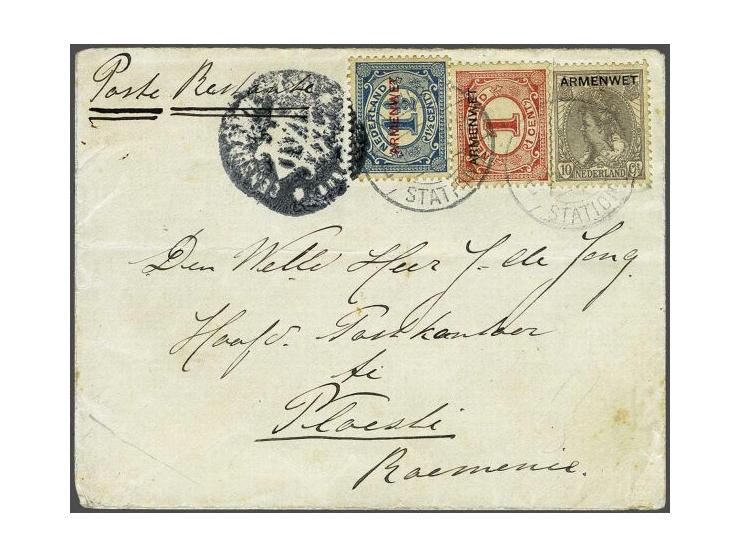 Poste Restante
NEDERLAND
1½
ARMENWET
1
ARMENWET
ARMENWET
10 Ct
NEDERLAND
STATIO
STATIO
Den Welle Heer J. de Jong.
Hoofd. Postkantoor
te
Ploesti
Roemenie.